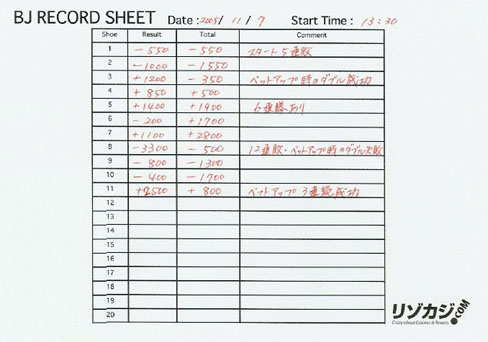 BJ RECORD SHEET Date : 2005/ 11 / 7 Start Time : 13:30
Shoe Result Total Comment
1 -550 -550 スタート5連敗
2 -1000 -1550
3 +1200 -350 ベットアップ時のダブル成功
4 +850 +500
5 +1400 +1900 6連勝あり
6 -200 +1700
7 +1100 +2800
8 -3300 -500 12連敗・ベットアップ時のダブル失敗
9 -800 -1300
10 -400 -1700
11 +2500 +800 ベットアップ3連続成功
12
13
14
15
16
17
18
19
20
リゾカジ.COM
Crazy about Casinos & Resorts